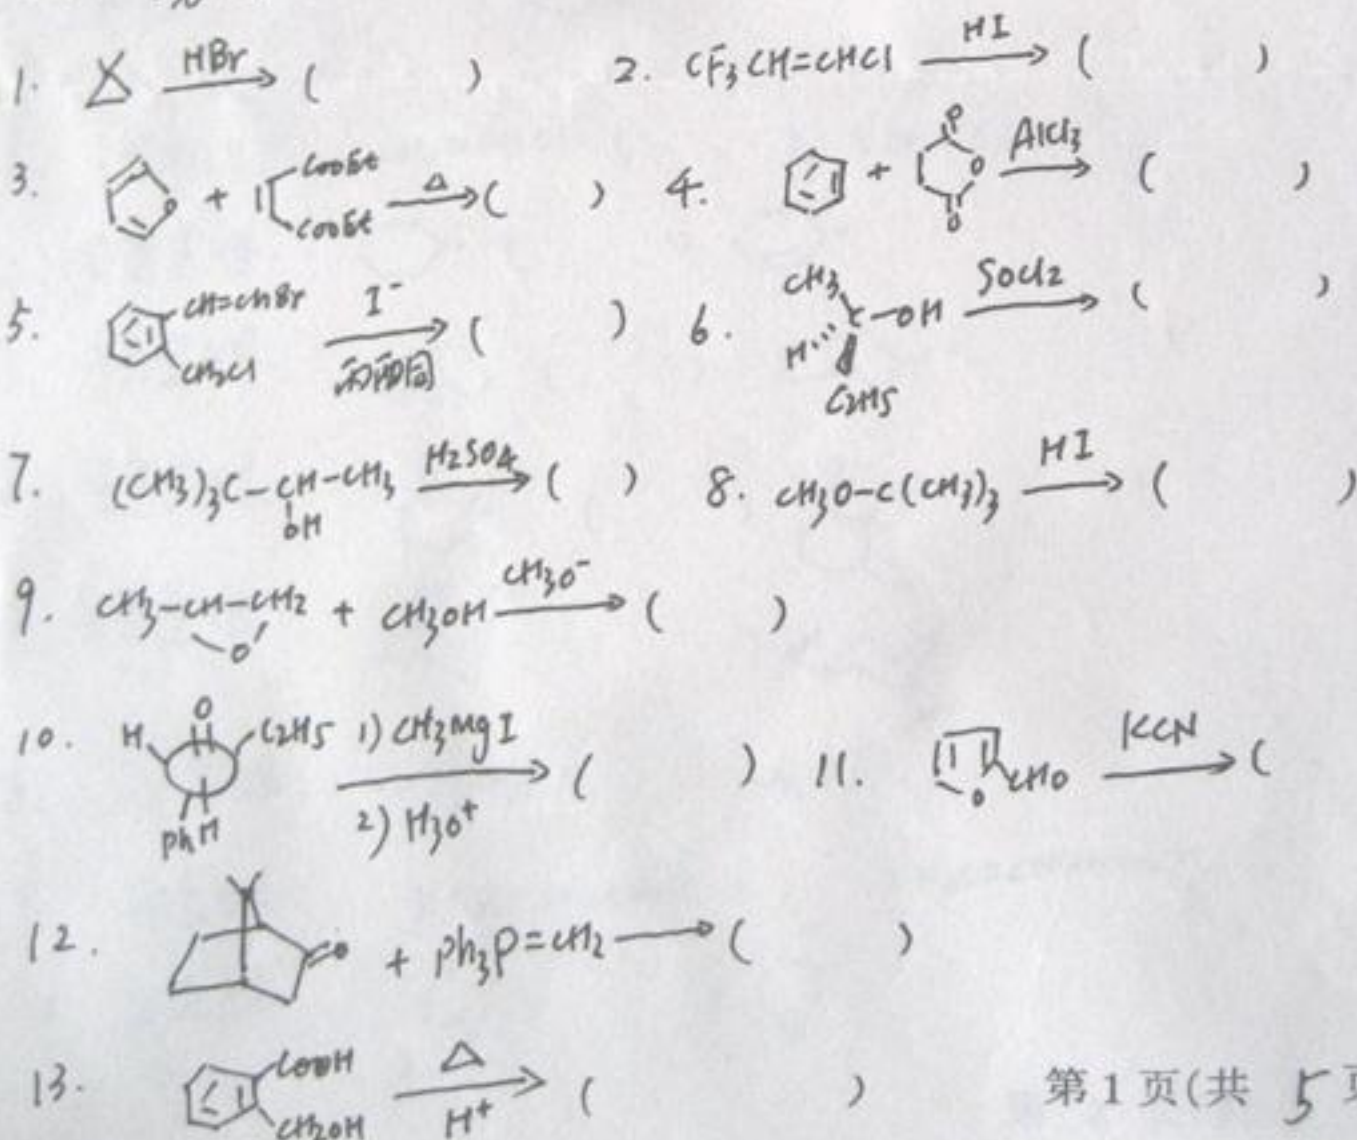 1. HBr ( ) 2. CF3CH=CHCl HI ( )
3. O + COOEt COOEt Δ ( ) 4. + O O O AlCl3 ( )
5. CH=CHBr CH2Cl I⁻ 丙酮 ( ) 6. CH3 H C-OH C2H5 SOCl2 ( )
7. (CH3)3C-CH-CH3 OH H2SO4 ( ) 8. CH3O-C(CH3)3 HI ( )
9. CH3-CH-CH2 O + CH3OH CH3O⁻ ( )
10. H O C2H5 Ph H 1) CH3MgI 2) H3O⁺ ( ) 11. O CHO KCN (
12. O + Ph3P=CH2 ( )
13. COOH CH2OH Δ H⁺ ( )
第1页(共 5